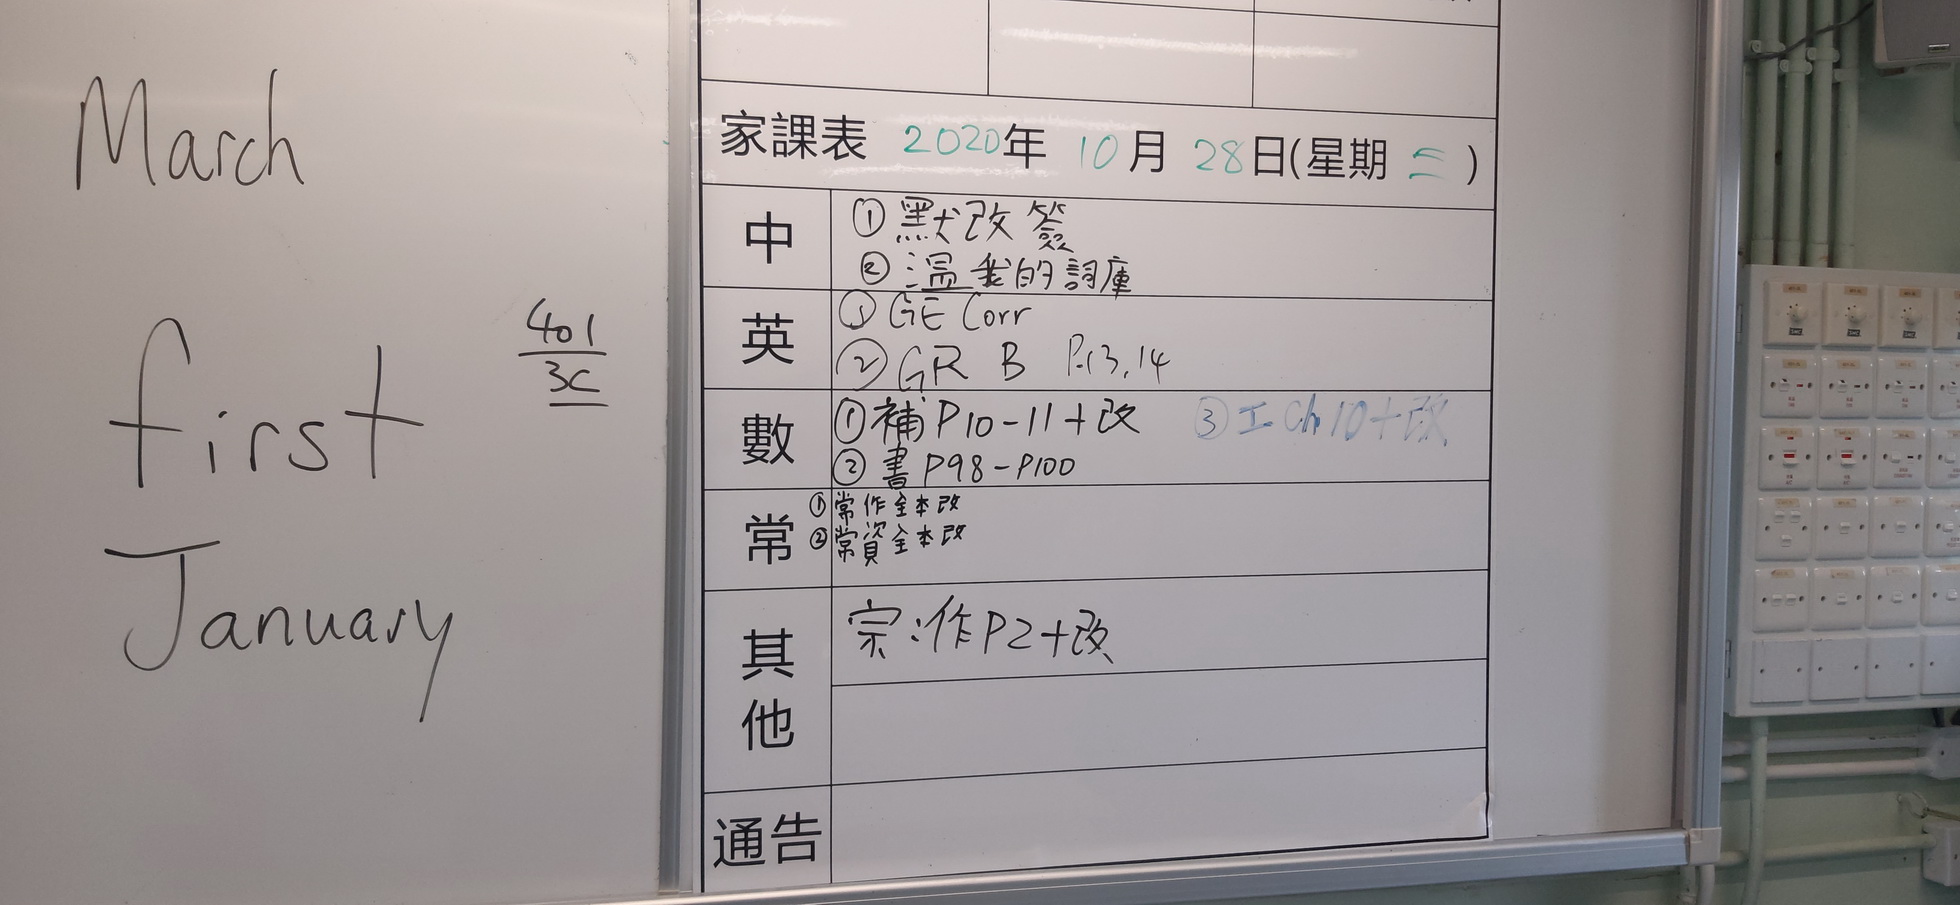 March
first
January
401
3C
家課表 2020年 10月 28日(星期 三 )
中
① 默改簽
② 溫我的詞庫
英
① GE Corr
② GR B P.13,14
數
① 補P10-11+改 ③ 工Ch10+改
② 書P98-P100
常
① 常作全本改
② 常資全本改
其他
宗:作P2+改
通告